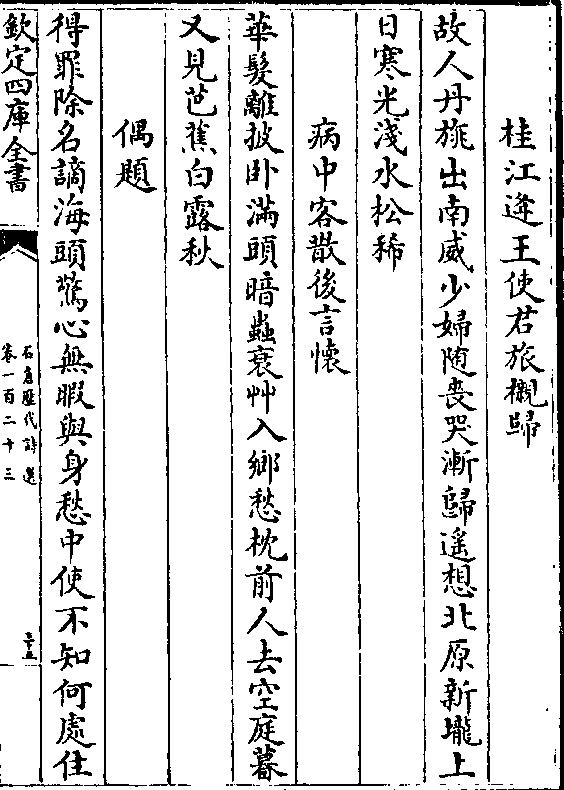 桂江逢王使君旅櫬歸
故人丹旐出南威少婦随喪哭漸歸遥想北原新壠上
日寒光淺水松稀
病中客散後言懷
華髮離披卧滿頭暗蟲衰艸入鄉愁枕前人去空庭暮
又見芭蕉白露秋
偶題
得罪除名謫海頭驚心無暇與身愁中使不知何處住
欽定四庫全書
石倉歴代詩選
卷一百二十三
二十五